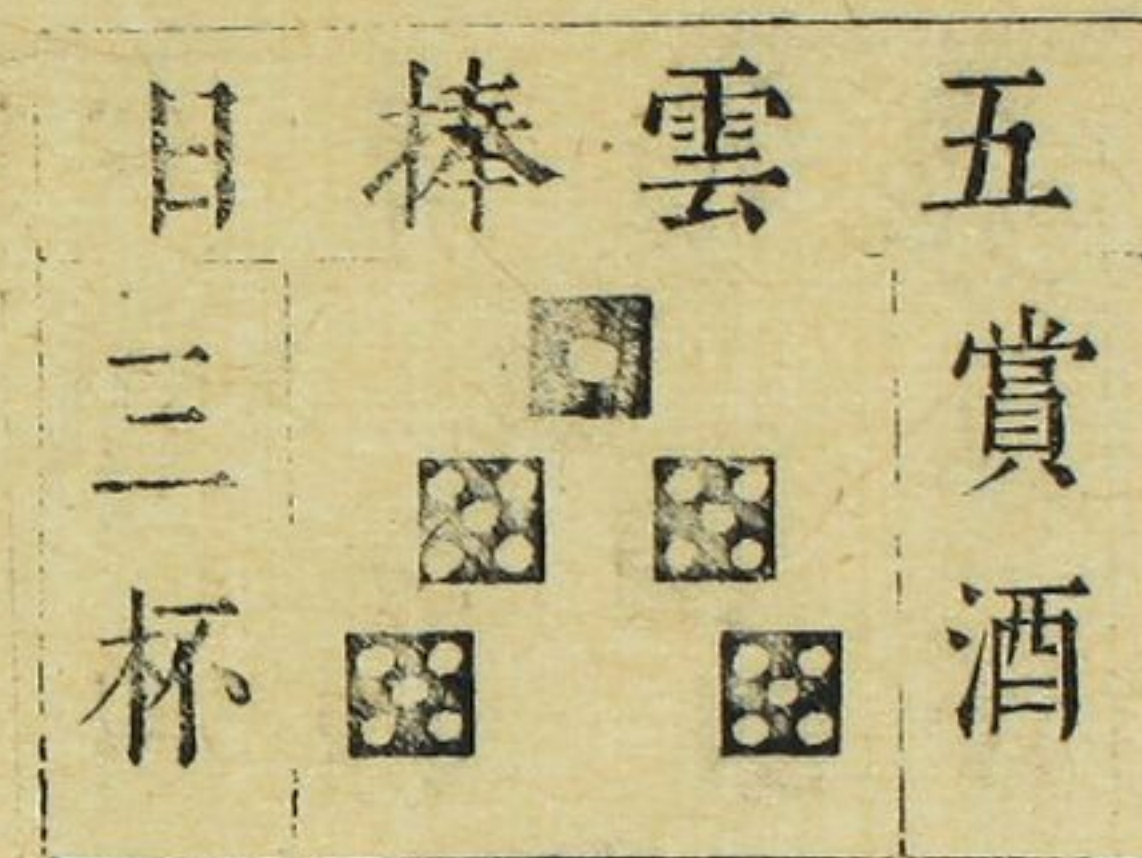 五雲棒日
賞酒
三杯